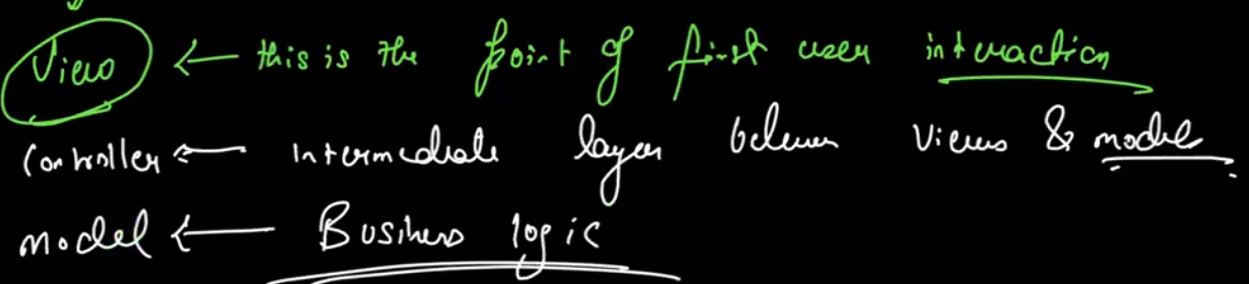 View ← this is the point of first user interaction
Controller ← Intermediate layer between Views & model
model ← Business logic